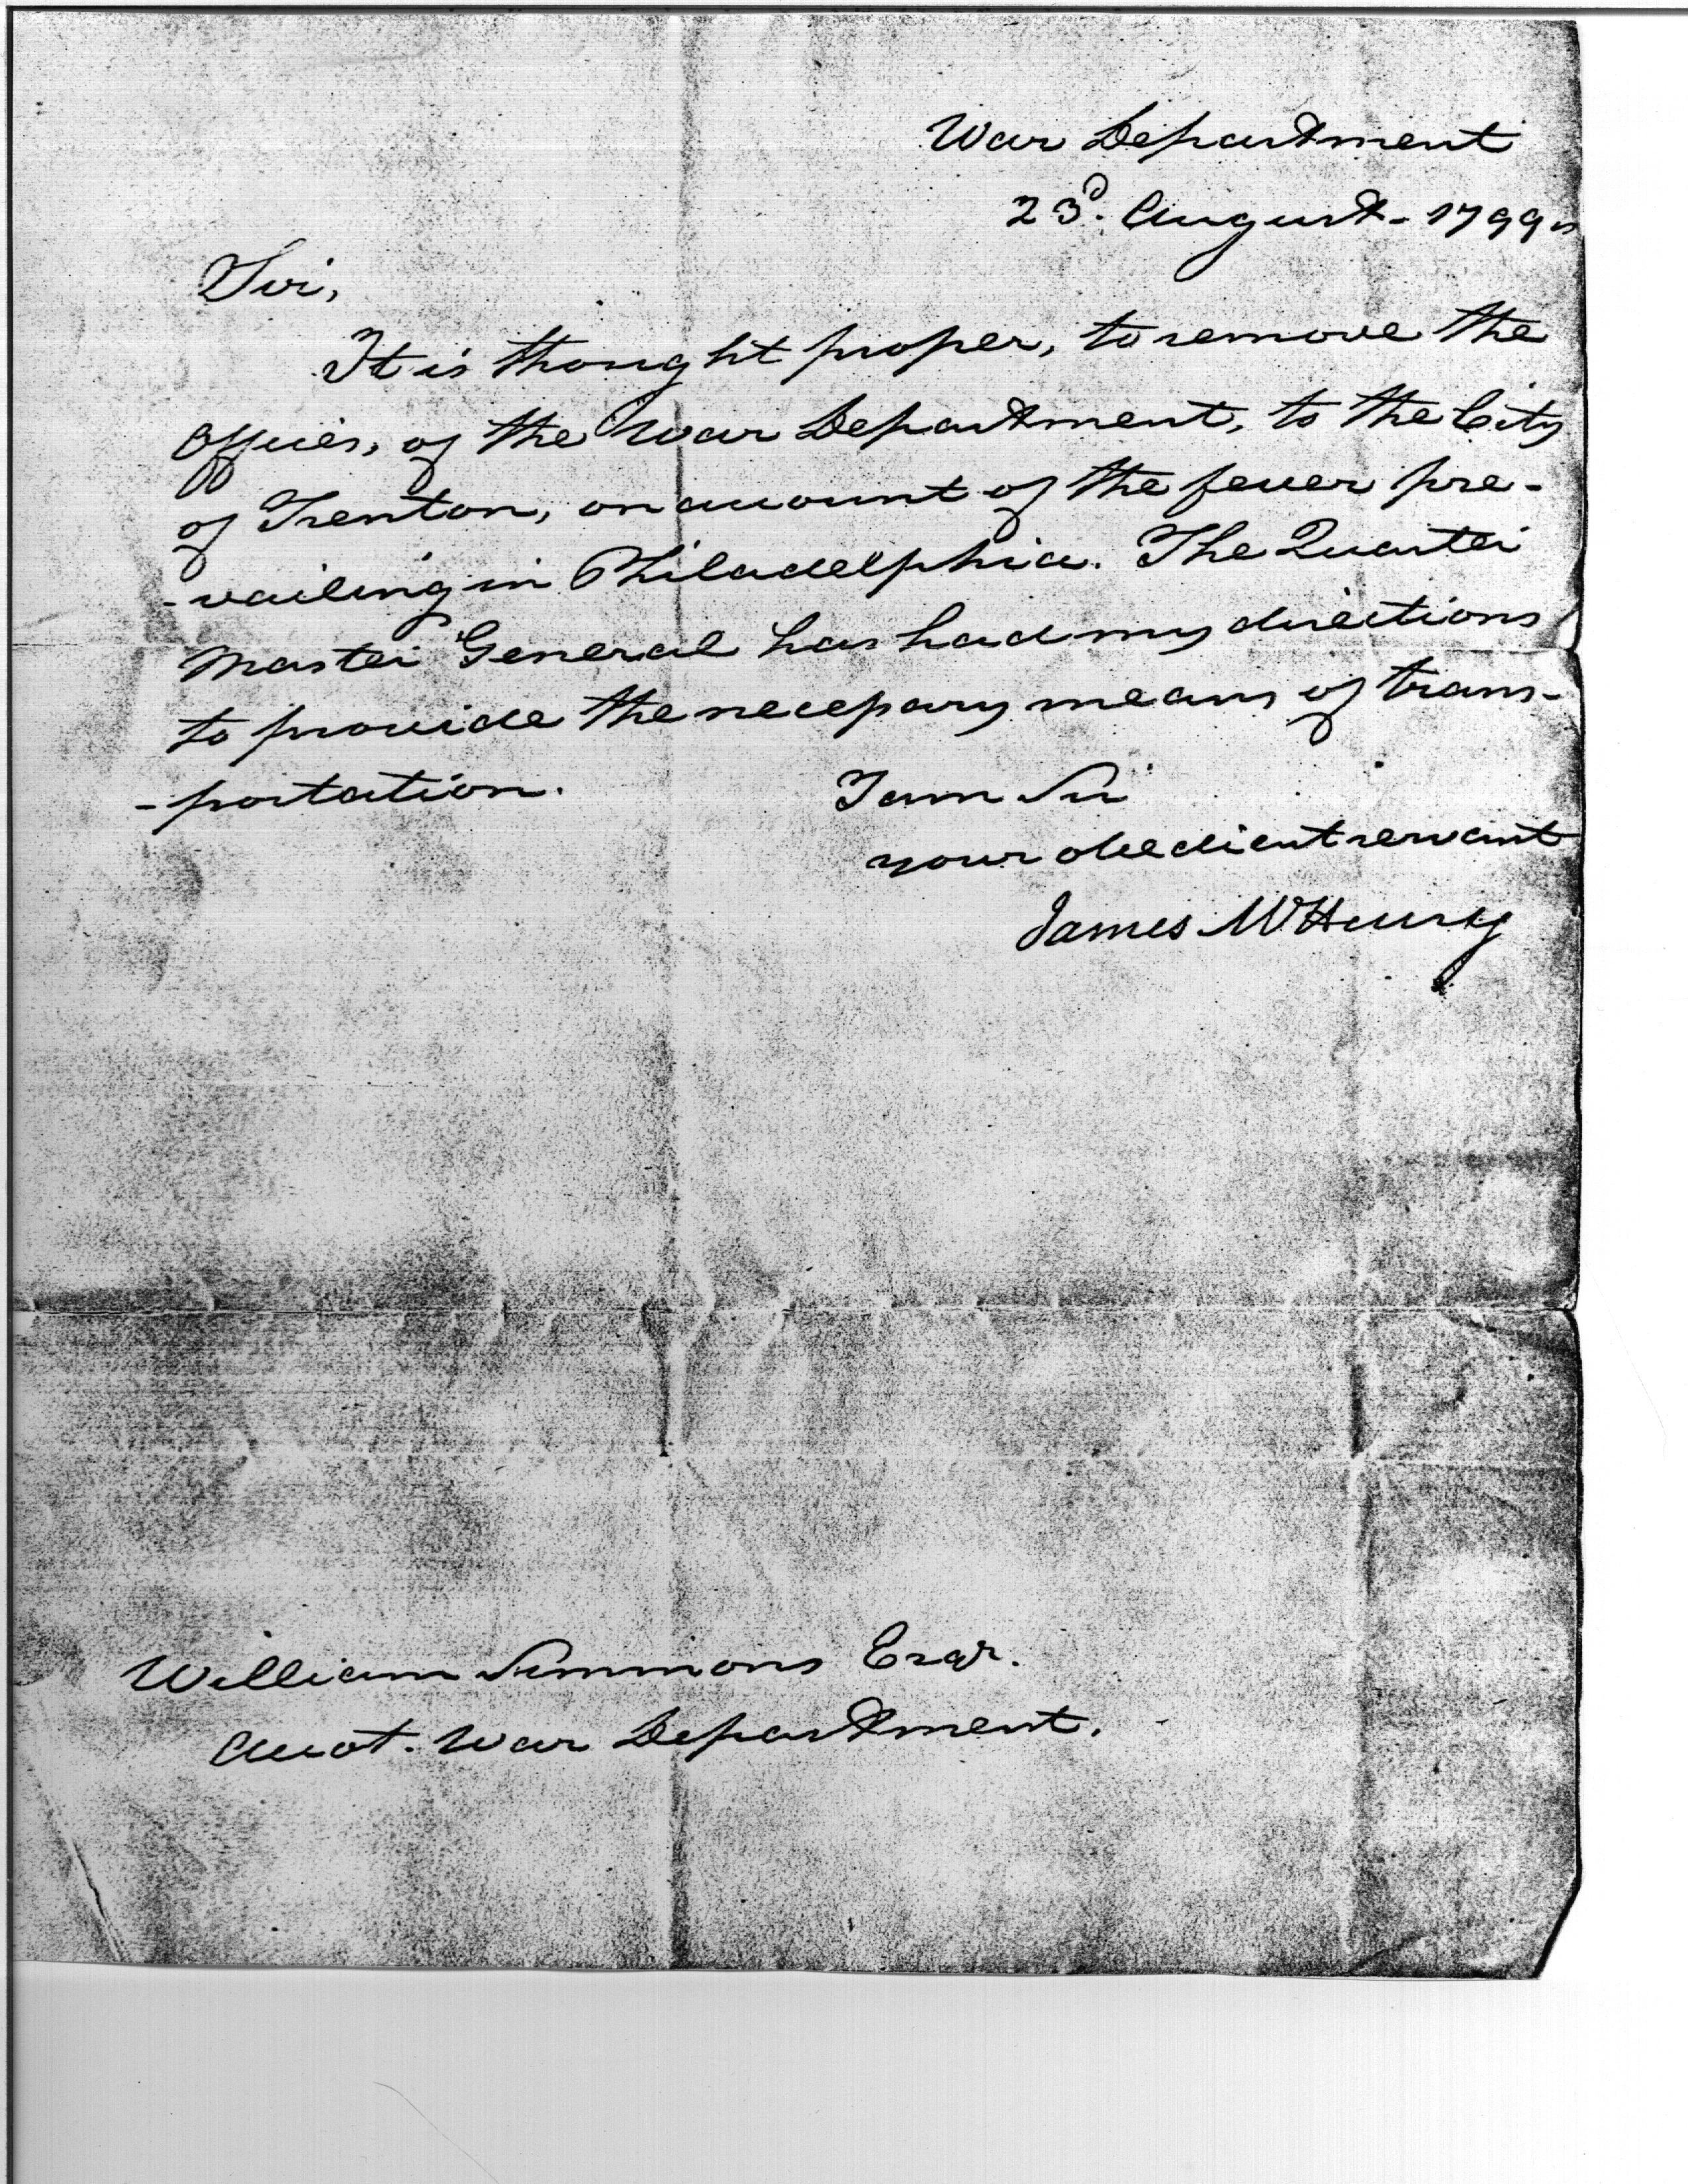 War Department
23d. August - 1799.
Sir,
It is thought proper, to remove the
Offices, of the War Department, to the City
of Trenton, on account of the fever pre-
-vailing in Philadelphia. The Quarter
Master General has had my directions
to provide the necessary means of trans-
-portation.
I am Sir
your obedient servant
James McHenry
William Simmons Esqr.
Accot. War Department.